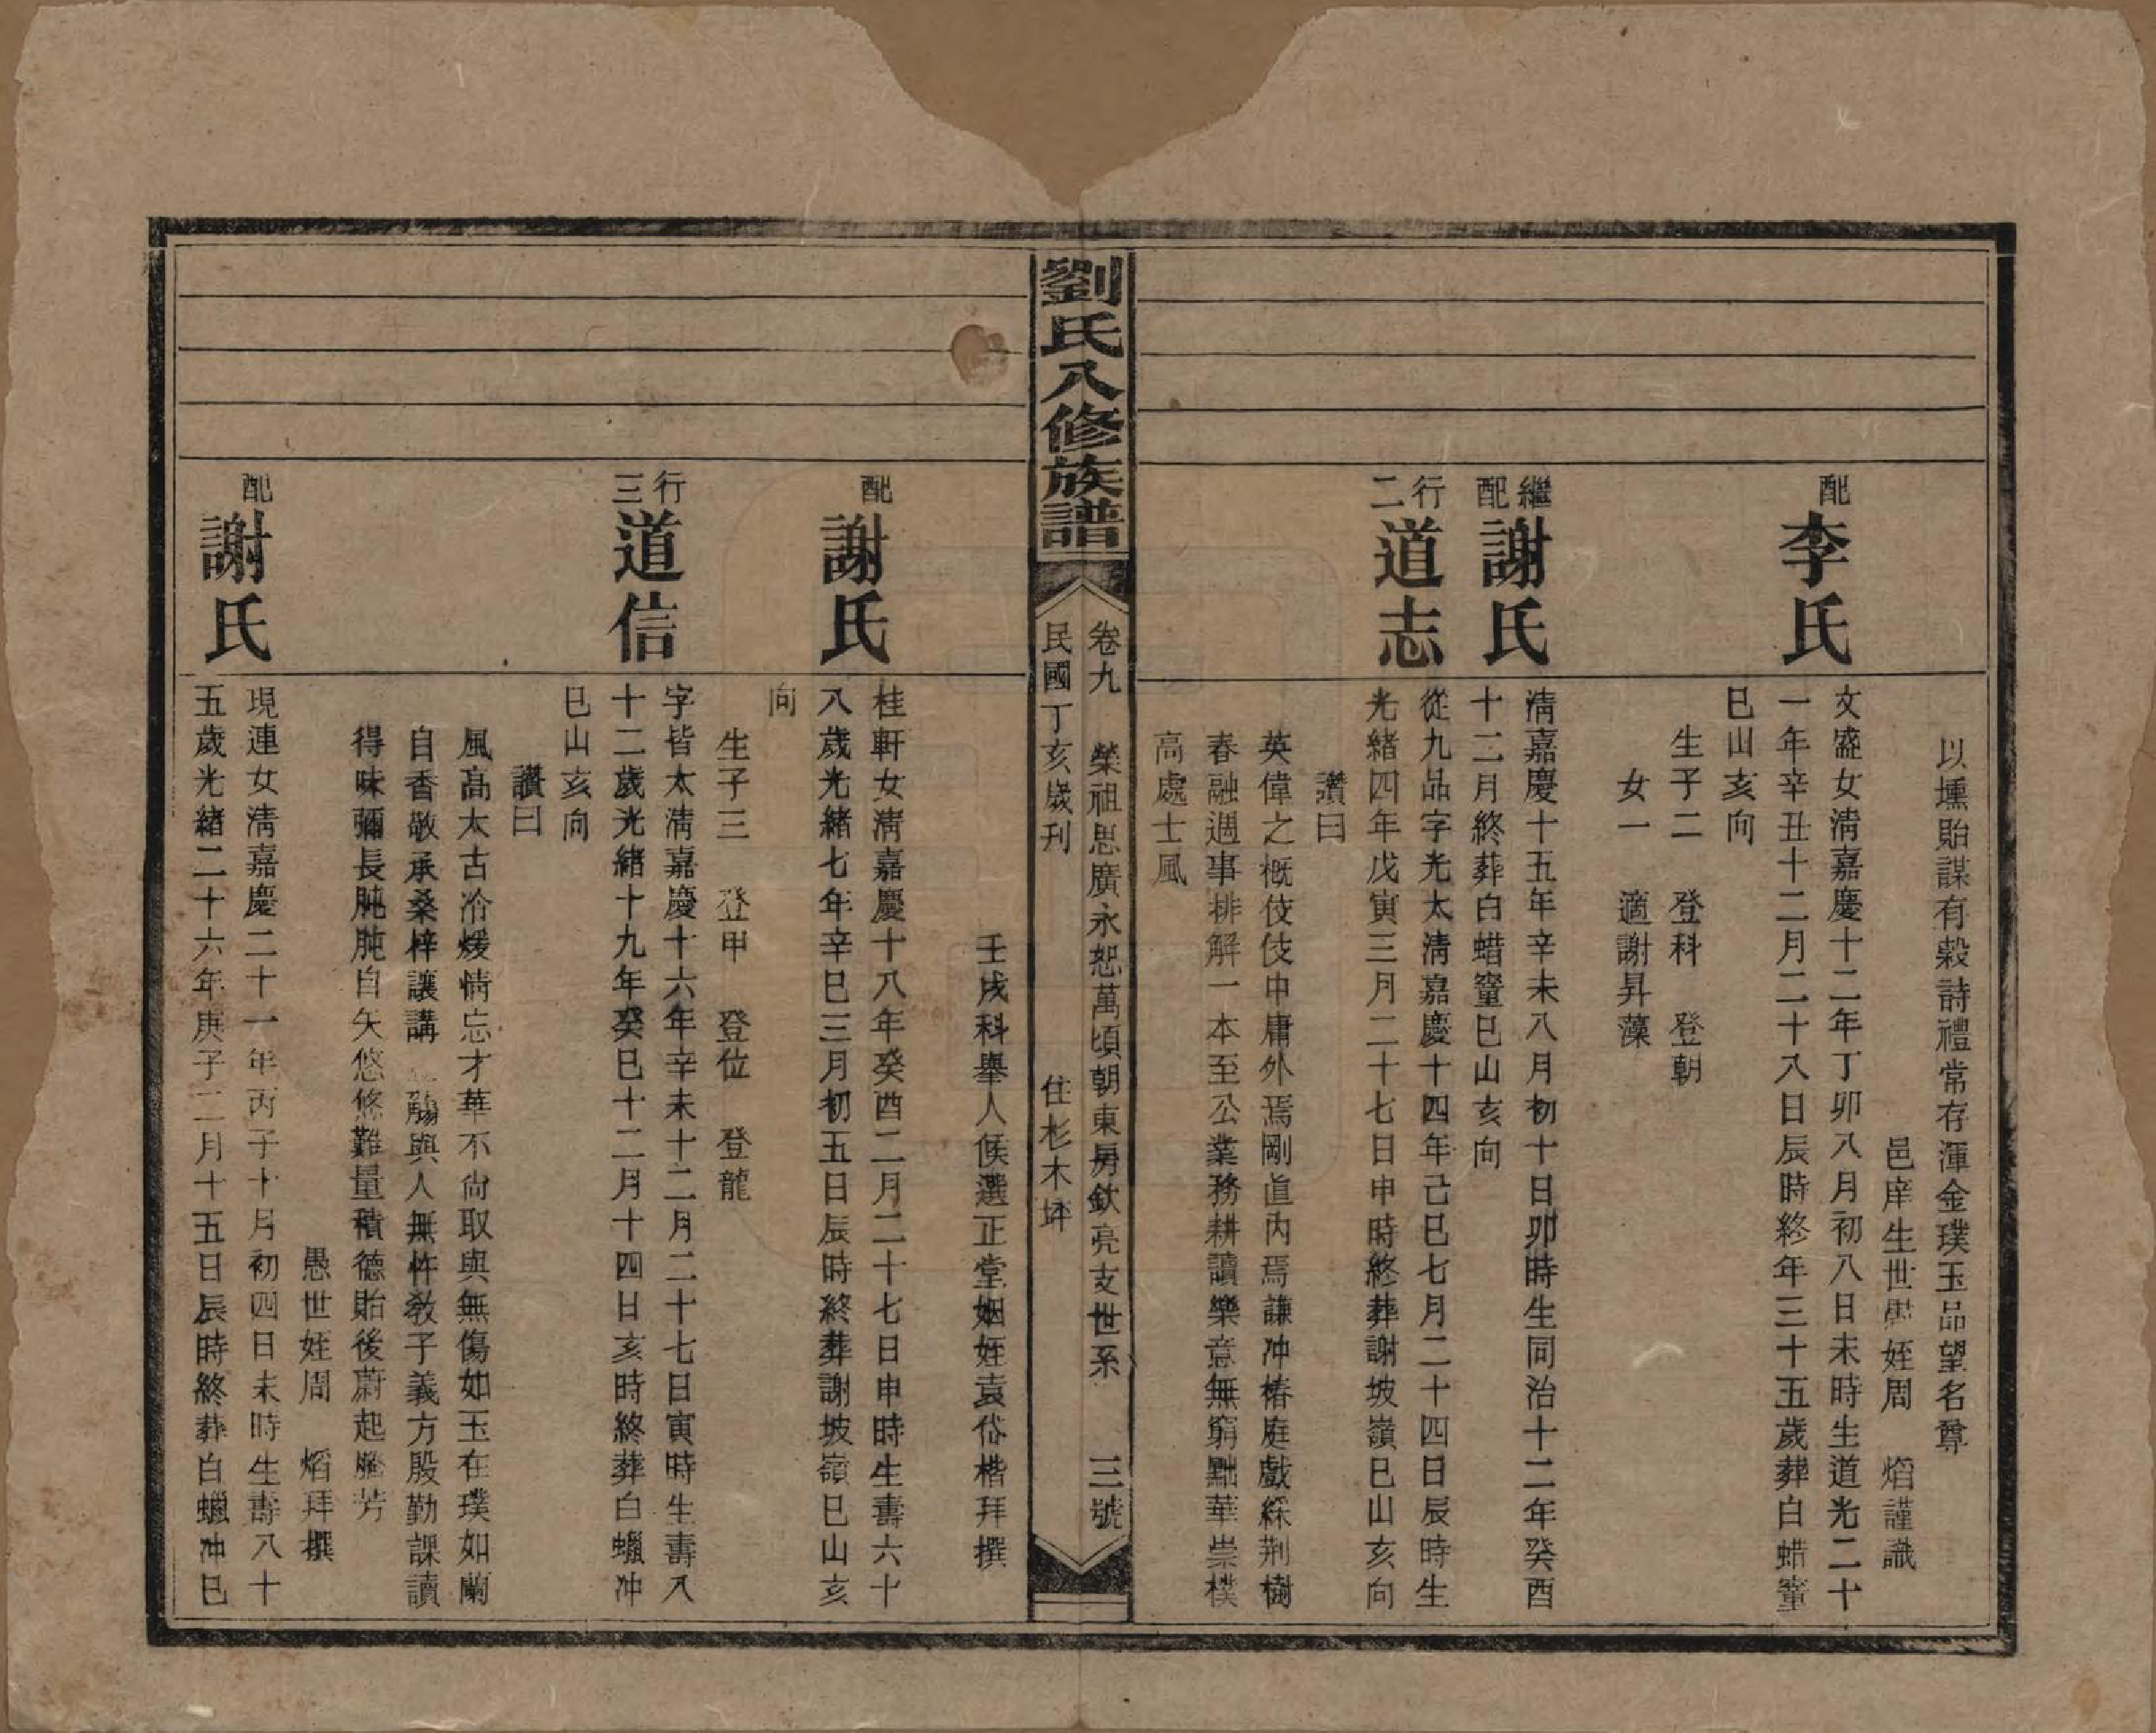 以壎貽謀有穀詩禮常存渾金璞玉品望名尊
邑庠生世愚姪周 熖謹識
配李氏
文盛女淸嘉慶十二年丁卯八月初八日未時生道光二十
一年辛丑十二月二十八日辰時終年三十五歲葬白蜡
巳山亥向
生子二 登科 登朝
女一 適謝昇藻
繼配謝氏
淸嘉慶十五年辛未八月初十日卯時生同治十二年癸酉
十二月終葬白蜡巳山亥向
行二道志
從九品字光太淸嘉慶十四年己巳七月二十四日辰時生
光緒四年戊寅三月二十七日申時終葬謝坡嶺巳山亥向
讚曰
英偉之概伎伎中庸外焉剛直內焉謙冲椿庭戲綵荆樹
春融週事排解一本至公業務耕讀樂意無窮黜華崇樸
高處士風
劉氏八修族譜
卷九 榮祖思廣永恕萬頃朝東房欽亮支世系 三號
民國丁亥歲刊 住杉木坪
壬戌科舉人候選正堂姻姪袁岱楷拜撰
配謝氏
桂軒女淸嘉慶十八年癸酉二月二十七日申時生壽六十
八歲光緒七年辛巳三月初五日辰時終葬謝坡嶺巳山亥
向
生子三 登甲 登位 登龍
行三道信
字皆太淸嘉慶十六年辛未十二月二十七日寅時生壽八
十二歲光緒十九年癸巳十二月十四日亥時終葬白蠟冲
巳山亥向
讚曰
風高太古冷煖情忘才華不尙取與無傷如玉在璞如蘭
自香敬承桑梓讓講觴與人無忤敎子義方殷勤課讀
得味彌長肫肫自矢悠悠難量積德貽後蔚起騰芳
愚世姪周 熖拜撰
配謝氏
現連女淸嘉慶二十一年丙子十月初四日未時生壽八十
五歲光緒二十六年庚子二月十五日辰時終葬白蠟冲巳